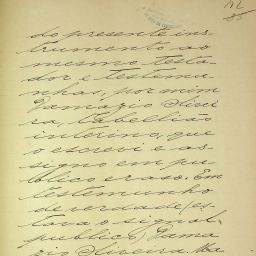 do presente ins-
trumento ao
mesmo testa-
dor e testemu-
nhas, por mim
Damazio Olivei-
ra, tabellião
interino, que
o escrevi e as-
signo em pu-
blico e raso. Em
testemunho
de verdade (es-
tava o signal
publico) Dama-
zio Oliveira. Ma-